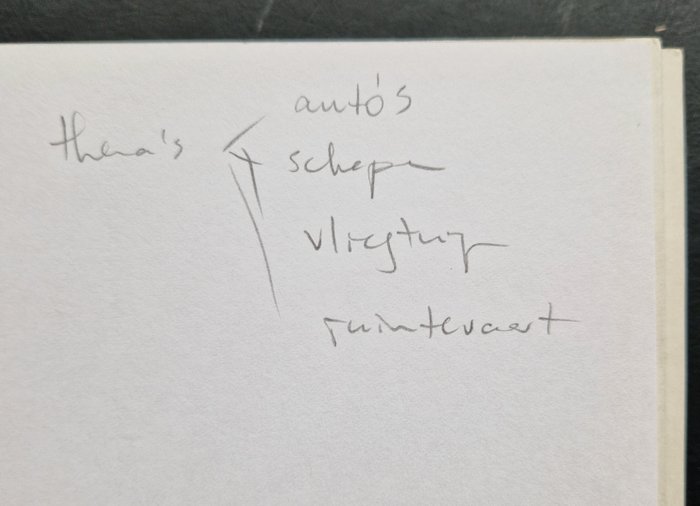 thema's
auto's
schepen
vliegtuig
ruimtevaart